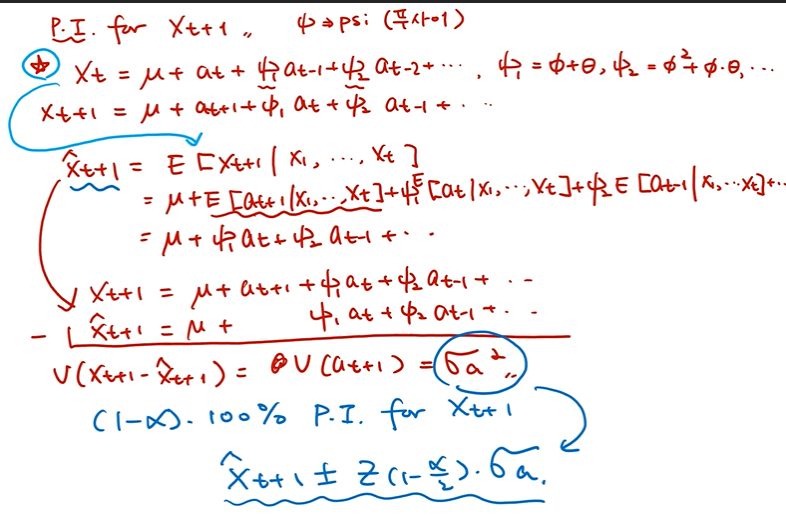 P.I. for Xt+1 ,, ψ ⇒ psi (프사이)
☆ Xt = μ + at + ψ1 at-1 + ψ2 at-2 + ⋯ , ψ1 = φ+θ, ψ2 = φ²+φ·θ, ⋯
Xt+1 = μ + at+1 + ψ1 at + ψ2 at-1 + ⋯
X̂t+1 = E[Xt+1 | X1, ⋯, Xt]
= μ + E[at+1 | X1, ⋯, Xt] + ψ1 E[at | X1, ⋯, Xt] + ψ2 E[at-1 | X1, ⋯ Xt] + ⋯
= μ + ψ1 at + ψ2 at-1 + ⋯
Xt+1 = μ + at+1 + ψ1 at + ψ2 at-1 + ⋯
− X̂t+1 = μ + ψ1 at + ψ2 at-1 + ⋯
V(Xt+1 - X̂t+1) = V(at+1) = σa² ,,
(1-α)·100% P.I. for Xt+1
X̂t+1 ± Z(1-α/2)·σa.